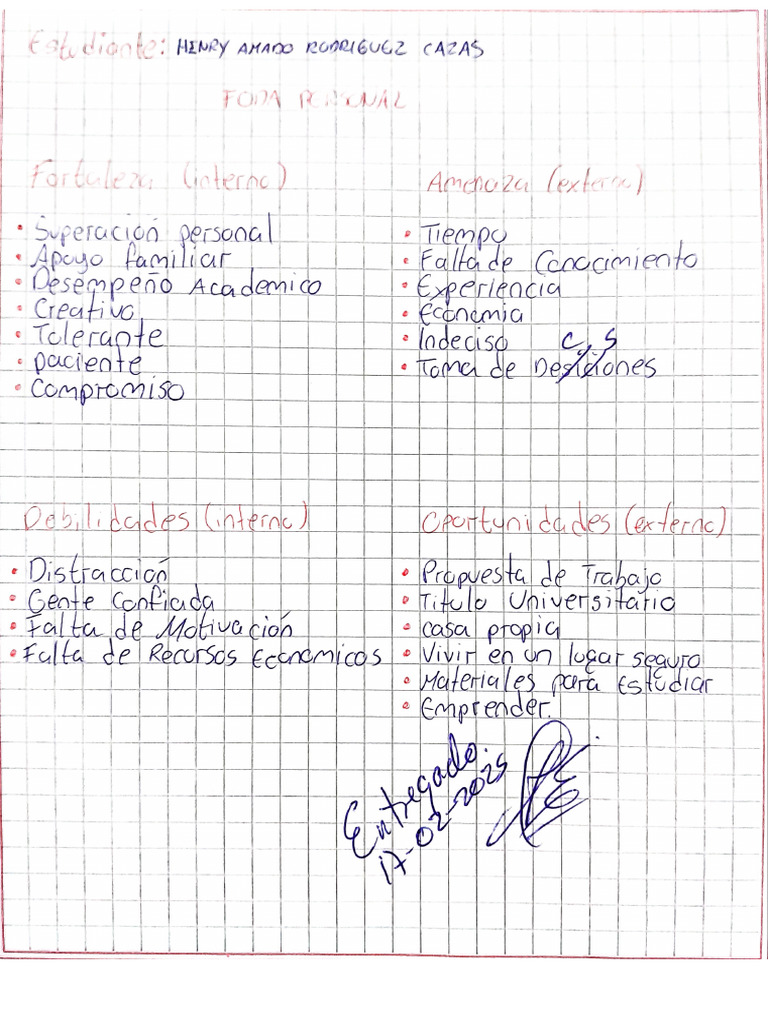 Estudiante: HENRY AMADO RODRIGUEZ CAZAS
FODA PERSONAL
Fortaleza (interna)
• Superación personal
• Apoyo familiar
• Desempeño Academico
• Creativo
• Tolerante
• paciente
• Compromiso
Amenaza (externa)
• Tiempo
• Falta de Conocimiento
• Experiencia
• Economia
• Indeciso
c, s
• Toma de Desiciones
Debilidades (interna)
• Distracción
• Gente Confiada
• Falta de Motivación
• Falta de Recursos Economicos
Oportunidades (externa)
• Propuesta de Trabajo
• Titulo Universitario
• casa propia
• Vivir en un lugar seguro
• Materiales para Estudiar
• Emprender.
Entregado.
17-02-2025